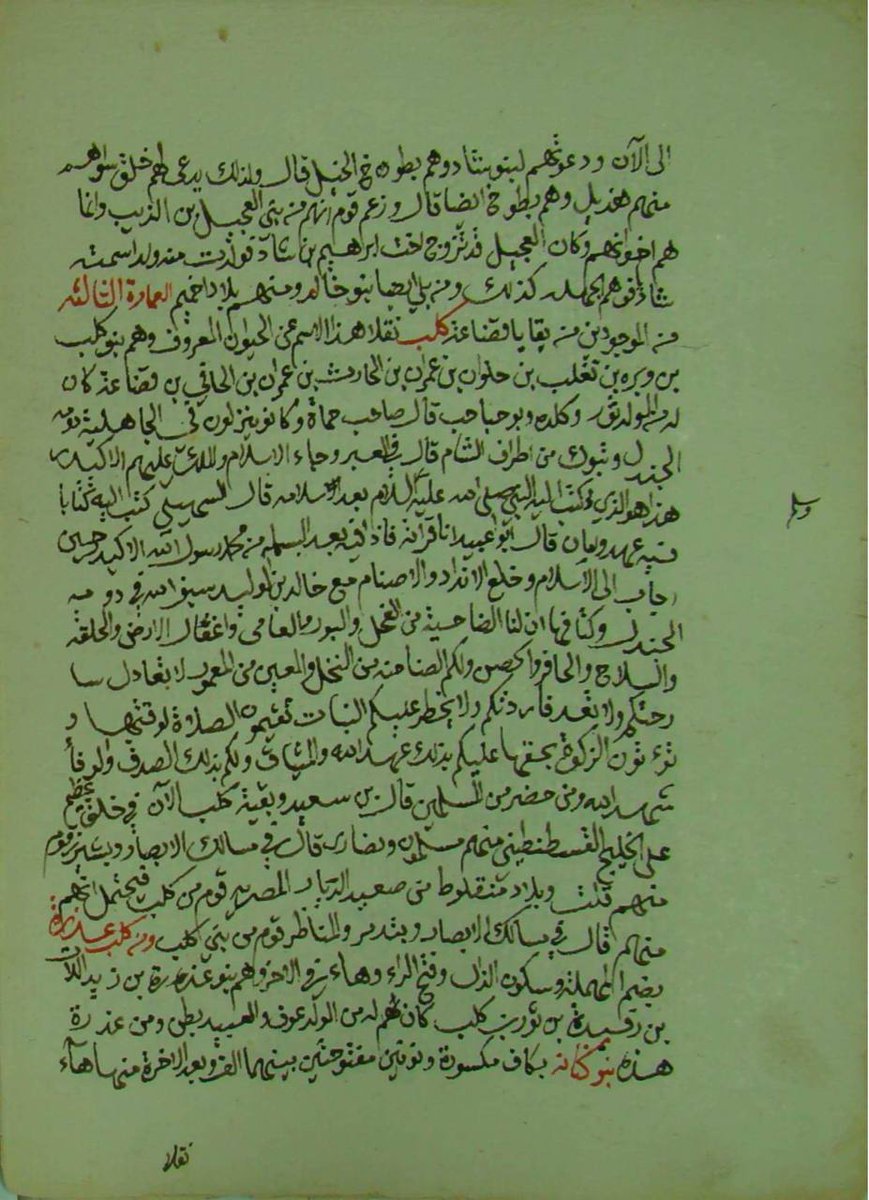 الى الآن ودعوتهم لبنو شاد وهم بطون في الخيل قال ولذلك يدعى لهم خلق سواهم
منهم هذيل وهم بطون ايضا قال وزعم قوم انهم من بني العجيل بن الذيب وانما
هم اخوانهم وكان العجيل قد تزوج اخت ابراهيم بن شاد فولدت منه ولدا سمته
شاد فهم بجملته كذلك ومن بلي ايضا بنو خالد ومنهم بلاد اخميم العمارة الثالثه
من الموجودين من بقايا قضاعة كلب نقلا هذا الاسم عن الحيوان المعروف وهم بنو كلب
بن وبره بن تغلب بن حلوان بن عمران بن الحارث بن عمران بن الحافي بن قضاعة كان
له من الولد ثور وكلده وبو حباحب قال صاحب حماة وكانو ينزلون في الجاهلية دومه
الجندل وتبوك من اطراف الشام قال في العبر وجاء الاسلام والملك عليهم الاكيدر
هذا هو الذي كتب اليه النبي صلى الله عليه السلام بعد اسلامه قال السهيلي كتب اليه كتابا
فيه عهد وامان قال ابو عبيد انا قراته فاذا فيه بعد البسملة من محمد رسول الله الاكيدر حين
اجاب الى الاسلام وخلع الانداد والاصنام مع خالد بن الوليد سيف الله في دومه
الجندل وكنافها ان لنا الضاحية من الضحل والبور والمعامى واغفال الارض والحلقة
والسلاح والحافر والحصن ولكم الضامنه من النخل والمعين من المعمور لا تعادل سا
رحتكم ولا تعد فاردتكم ولا يحظر عليكم النبات تقيمون الصلاة لوقتها و
تؤتون الزكوة بحقها عليكم بذلك عهد الله والميثاق ولكم بذلك الصدق والوفأ
شهد الله ومن حضر من المسلمين قال بن سعيد وبقية كلب الآن في خلق عظيم
على الخليج القسطنطيني منهم مسلمون ونصارى قال في مسالك الابصار وبشيزر قوم
منهم قلت وبلاد منفلوط من صعيد الديار المصريه قوم من كلب فيحتمل انهم
منهم قال في مسالك الابصار وبتدمر والمناظر قوم من بني كلب ومن كلب عذرة
بضم المهملة وسكون الذال وفتح الراء وهاء في الاخر وهم بنو عذرة بن زيد اللات
بن رفيدة بن ثور بن كلب كان لهم له من الولد عوف والعبيد بطن ومن عذرة
هذه بنو كنانه بكاف مكسورة ونونين مفتوحتين بينهما الف وبعد الاخرة منها هآء
نقلا